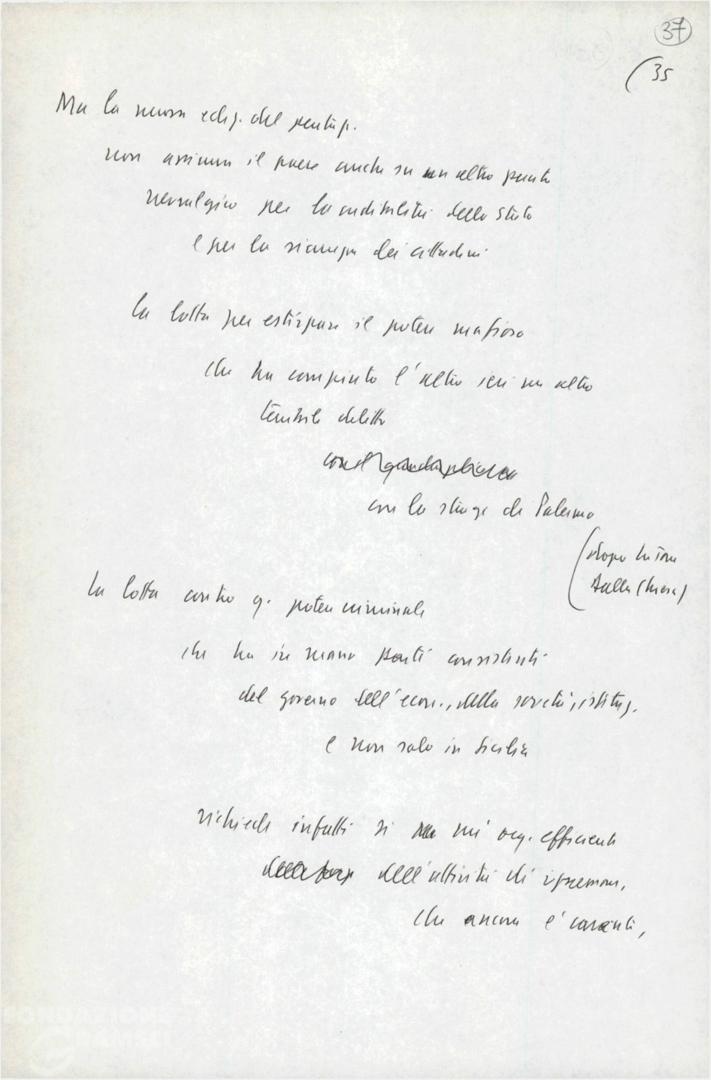 37
(35
Ma la nuova ediz. del pentap.
non assicura il paese anche su un altro punto
nevralgico per la credibilità dello Stato
e per la sicurezza dei cittadini
la lotta per estirpare il potere mafioso
che ha compiuto l'altro ieri un altro
terribile delitto
con la strage di Palermo
(dopo La Torre
Dalla Chiesa)
La lotta contro q. potere criminale
che ha in mano punti consistenti
del governo dell'econ., della società, istituz.
e non solo in Sicilia
richiede infatti sì un' org. efficiente
dell'attività di
che ancora è carente,
FONDAZIONE
GRAMSCI